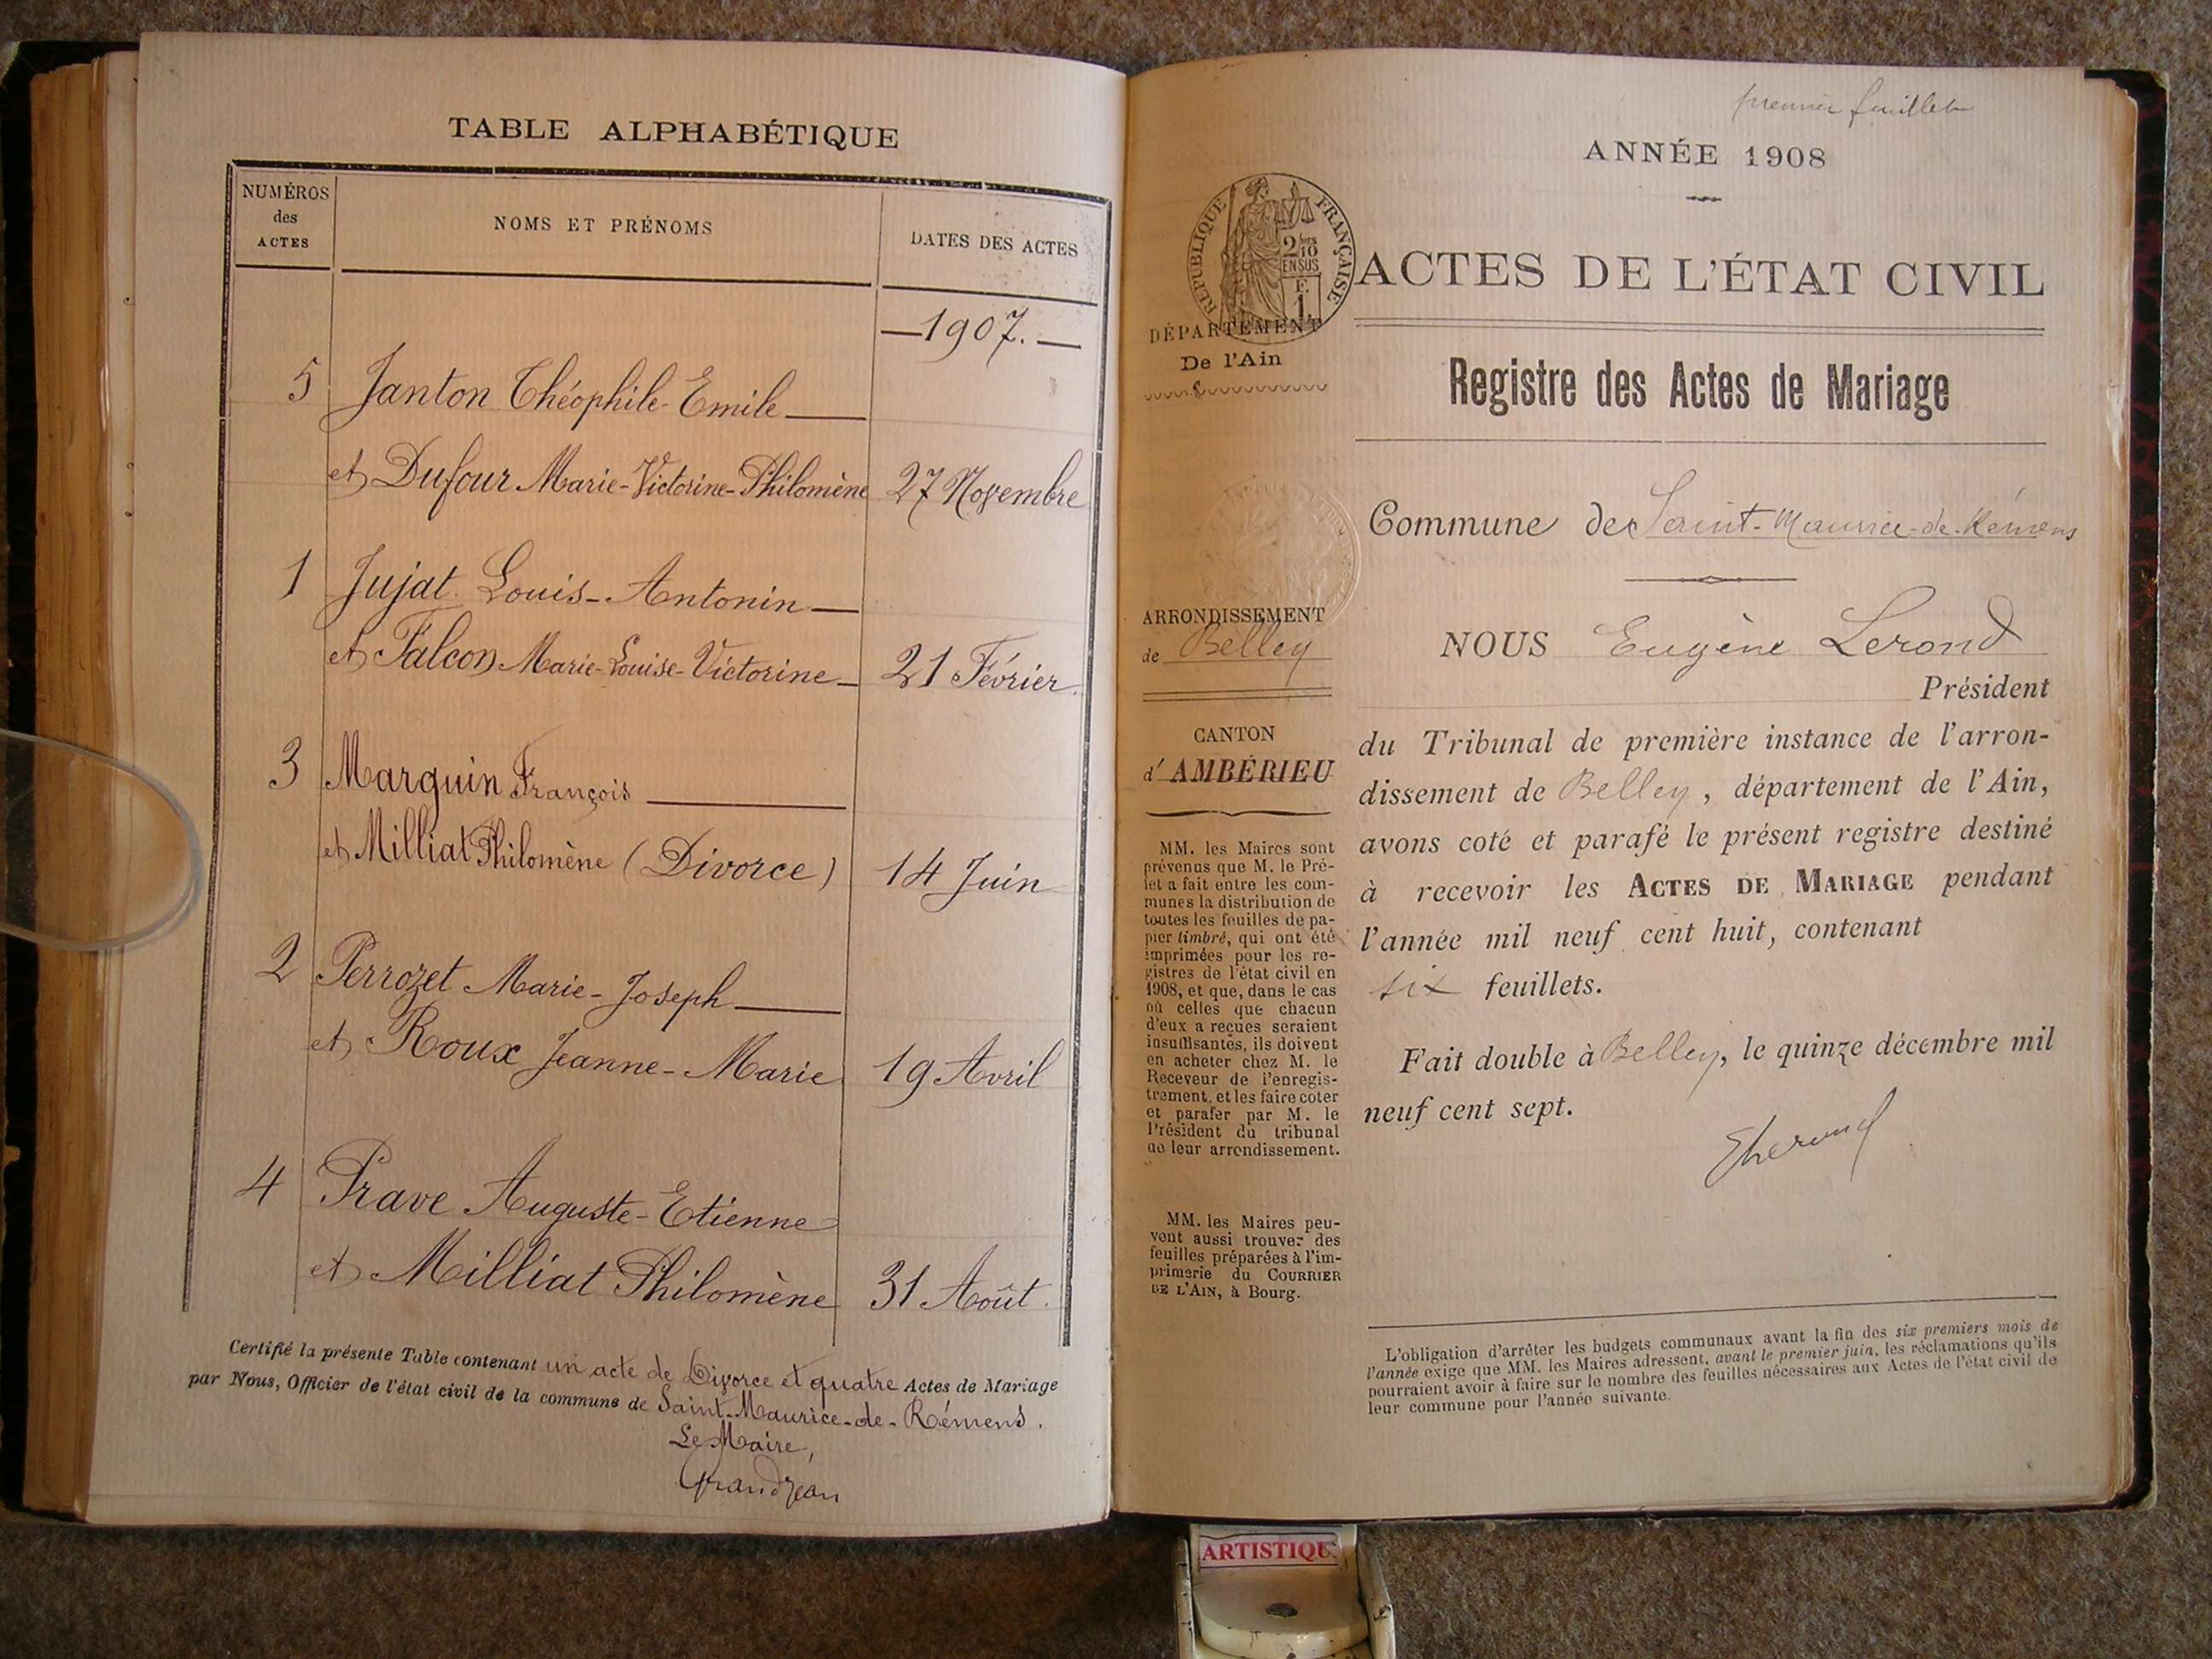 TABLE ALPHABÉTIQUE
NUMÉROS
des
ACTES
NOMS ET PRÉNOMS
DATES DES ACTES
—1907.—
5 Janton Théophile-Emile
et Dufour Marie-Victorine-Philomène 27 Novembre
1 Jujat Louis-Antonin
et Falcon Marie-Louise-Victorine 21 Février
3 Marguin François
et Milliat Philomène (Divorce) 14 Juin
2 Perrozet Marie-Joseph
et Roux Jeanne-Marie 19 Avril
4 Prave Auguste-Etienne
et Milliat Philomène 31 Août.
Certifié la présente Table contenant un acte de Divorce et quatre Actes de Mariage
par Nous, Officier de l'état civil de la commune de Saint-Maurice-de-Rémens.
Le Maire,
Grandjean
premier feuillet
ANNÉE 1908
RÉPUBLIQUE FRANÇAISE
2/10
EN SUS
F.
1
ACTES DE L'ÉTAT CIVIL
DÉPARTEMENT
De l'Ain
Registre des Actes de Mariage
Commune de Saint-Maurice-de-Rémens
ARRONDISSEMENT
de Belley
CANTON
d'AMBÉRIEU
MM. les Maires sont
prévenus que M. le Pré-
fet a fait entre les com-
munes la distribution de
toutes les feuilles de pa-
pier timbré, qui ont été
imprimées pour les re-
gistres de l'état civil en
1908, et que, dans le cas
où celles que chacun
d'eux a reçues seraient
insuffisantes, ils doivent
en acheter chez M. le
Receveur de l'enregis-
trement, et les faire coter
et parafer par M. le
Président du tribunal
de leur arrondissement.
MM. les Maires peu-
vent aussi trouver des
feuilles préparées à l'im-
primerie du COURRIER
DE L'AIN, à Bourg.
NOUS Eugène Lerond
Président
du Tribunal de première instance de l'arron-
dissement de Belley, département de l'Ain,
avons coté et parafé le présent registre destiné
à recevoir les ACTES DE MARIAGE pendant
l'année mil neuf cent huit, contenant
six feuillets.
Fait double à Belley, le quinze décembre mil
neuf cent sept.
L'obligation d'arrêter les budgets communaux avant la fin des six premiers mois de
l'année exige que MM. les Maires adressent, avant le premier juin, les réclamations qu'ils
pourraient avoir à faire sur le nombre des feuilles nécessaires aux Actes de l'état civil de
leur commune pour l'année suivante.
ARTISTIQU